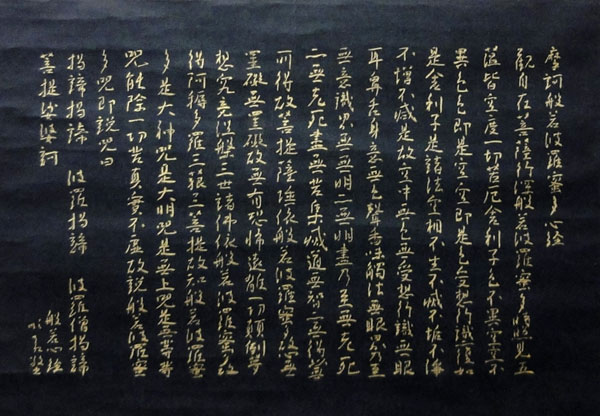 摩訶般若波羅蜜多心経
観自在菩薩行深般若波羅蜜多時照見五
蘊皆空度一切苦厄舎利子色不異空空不
異色色即是空空即是色受想行識復如
是舎利子是諸法空相不生不滅不垢不浄
不増不減是故空中無色無受想行識無眼
耳鼻舌身意無色聲香味觸法無眼界乃至
無意識界無無明亦無無明盡乃至無老死
亦無老死盡無苦集滅道無智亦無得以無
所得故菩提薩埵依般若波羅蜜多故心無
罣礙無罣礙故無有恐怖遠離一切顛倒夢
想究竟涅槃三世諸佛依般若波羅蜜多故
得阿耨多羅三藐三菩提故知般若波羅蜜
多是大神呪是大明呪是無上呪是無等等
呪能除一切苦真實不虚故説般若波羅蜜
多呪即説呪曰
掲諦掲諦 波羅掲諦 波羅僧掲諦
菩提娑婆訶
般若心経